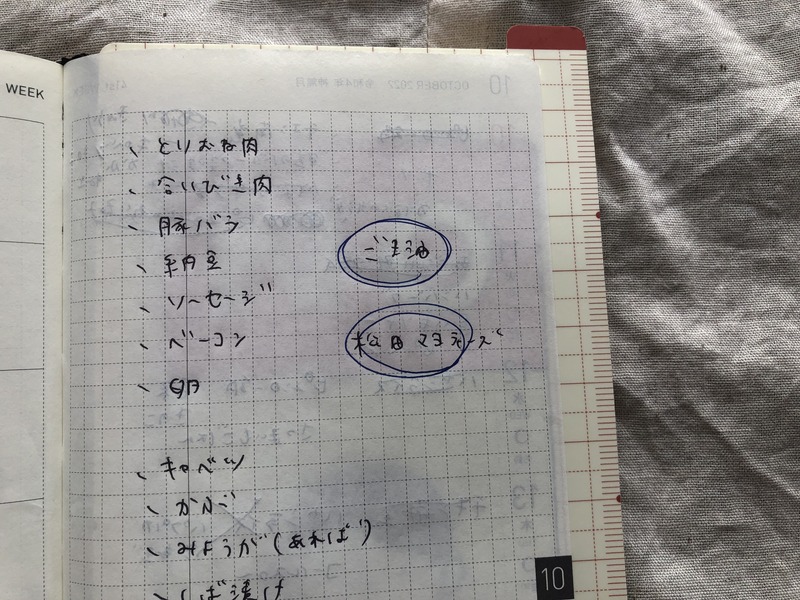 WEEK
、とりむね肉
、合いびき肉
、豚バラ
、納豆
、ソーセージ
、ベーコン
、卵
、キャベツ
、みょうが(あれば)
、しば漬け
ごま油
松田マヨネーズ
10
10 OCTOBER 2022 令和4年 神無月